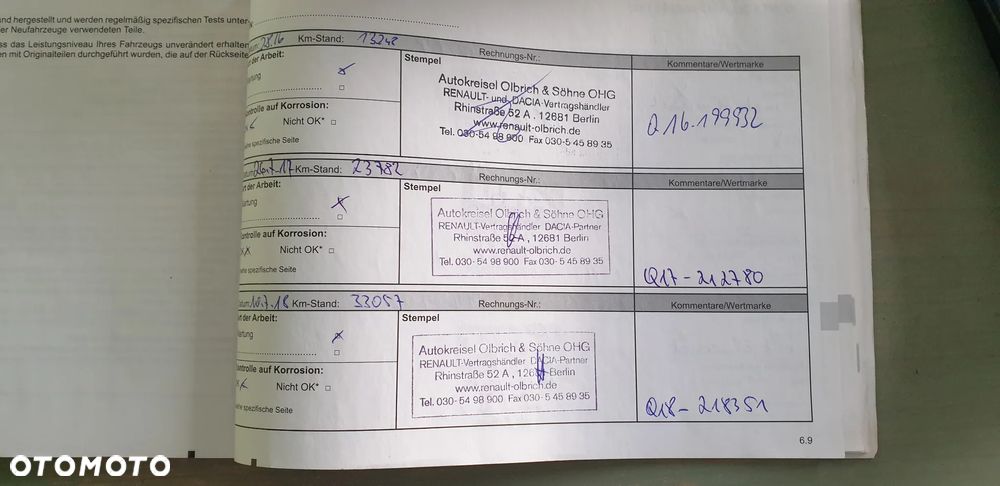 nd hergestellt und werden regelmäßig spezifischen Tests unter
er Neufahrzeuge verwendeten Teile.
ss das Leistungsniveau Ihres Fahrzeugs unverändert erhalten
en mit Originalteilen durchgeführt wurden, die auf der Rückseite
6.16 Km-Stand: 13248
Rechnungs-Nr.:
Kommentare/Wertmarke
der Arbeit:
artung
ontrolle auf Korrosion:
Nicht OK*
ehe spezifische Seite
Stempel
Autokreisel Olbrich & Söhne OHG
RENAULT- und DACIA-Vertragshändler
Rhinstraße 52 A, 12681 Berlin
www.renault-olbrich.de
Tel. 030-54 98 900 Fax 030-5 45 89 35
Q16.199932
atum: 26.7.17 Km-Stand: 23782
Rechnungs-Nr.:
Kommentare/Wertmarke
rt der Arbeit:
artung
ontrolle auf Korrosion:
Nicht OK*
ehe spezifische Seite
Stempel
Autokreisel Olbrich & Söhne OHG
RENAULT-Vertragshändler DACIA-Partner
Rhinstraße 52 A, 12681 Berlin
www.renault-olbrich.de
Tel. 030- 54 98 900 Fax 030- 5 45 89 35
Q17-212780
atum: 10.7.18 Km-Stand: 33057
Rechnungs-Nr.:
Kommentare/Wertmarke
rt der Arbeit:
artung
ontrolle auf Korrosion:
Nicht OK*
ehe spezifische Seite
Stempel
Autokreisel Olbrich & Söhne OHG
RENAULT-Vertragshändler DACIA-Partner
Rhinstraße 52 A, 12681 Berlin
www.renault-olbrich.de
Tel. 030- 54 98 900 Fax 030- 5 45 89 35
Q18-218351
6.9
OTOMOTO